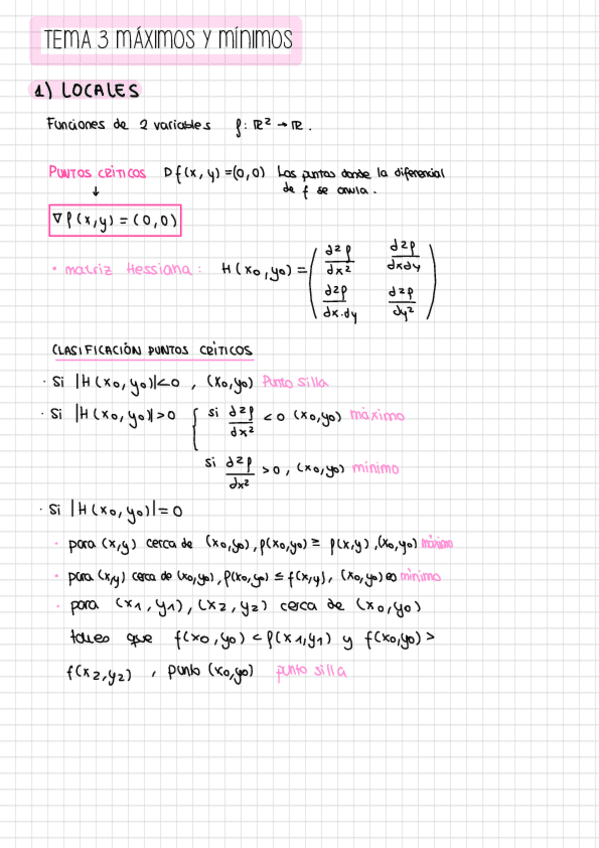 TEMA 3 MÁXIMOS Y MÍNIMOS
1) LOCALES
Funciones de 2 variables f: ℝ² → ℝ.
PUNTOS CRÍTICOS Df(x,y) = (0,0) Los puntos donde la diferencial
de f se anula.
↓
∇f(x,y) = (0,0)
· matriz Hessiana: H(x₀,y₀) = ( d²f/dx² d²f/dxdy
d²f/dx·dy d²f/dy² )
CLASIFICACIÓN PUNTOS CRÍTICOS
· Si |H(x₀,y₀)|<0, (x₀,y₀) Punto silla
· Si |H(x₀,y₀)|>0 { si d²f/dx² < 0 (x₀,y₀) máximo
si d²f/dx² >0, (x₀,y₀) mínimo
· Si |H(x₀,y₀)|=0
· para (x,y) cerca de (x₀,y₀), f(x₀,y₀) ≥ f(x,y), (x₀,y₀) máximo
· para (x,y) cerca de (x₀,y₀), f(x₀,y₀) ≤ f(x,y), (x₀,y₀) es mínimo
· para (x₁,y₁), (x₂,y₂) cerca de (x₀,y₀)
tales que f(x₀,y₀) < f(x₁,y₁) y f(x₀,y₀) >
f(x₂,y₂), punto (x₀,y₀) punto silla